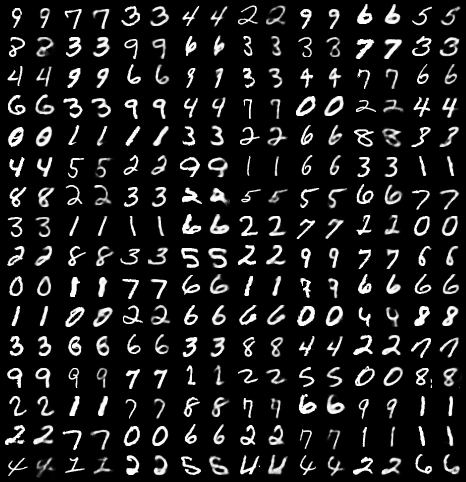 9 9 7 7 3 3 4 4 2 2 9 9 6 6 5 5
8 8 3 3 9 9 6 6 3 3 3 3 7 7 3 3
4 4 9 9 6 6 9 9 3 3 4 4 7 7 6 6
6 6 3 3 9 9 4 4 7 7 0 0 2 2 4 4
0 0 1 1 1 1 3 3 2 2 6 6 8 8 3 3
4 4 5 5 2 2 9 9 1 1 6 6 3 3 1 1
8 8 2 2 3 3 2 2 5 5 5 5 6 6 7 7
3 3 1 1 1 1 6 6 2 2 7 7 1 1 0 0
2 2 8 8 3 3 5 5 2 2 9 9 7 7 6 6
0 0 1 1 7 7 6 6 1 1 9 9 6 6 6 6
1 1 0 0 2 2 6 6 6 6 0 0 4 4 8 8
3 3 6 6 6 6 3 3 8 8 4 4 2 2 7 7
9 9 9 9 7 7 1 1 2 2 5 5 0 0 8 8
2 2 1 1 7 7 8 8 7 7 6 6 9 9 1 1
2 2 7 7 0 0 6 6 2 2 7 7 1 1 1 1
4 4 1 1 2 2 5 5 4 4 4 4 2 2 6 6